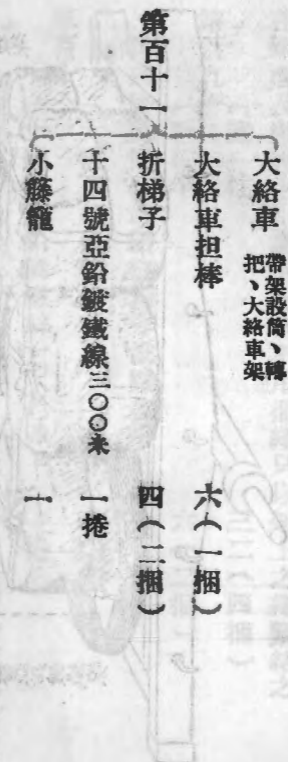 第百十一
大絡車 帶架設筒、轉把、大絡車架
大絡車担棒 六(一捆)
折梯子 四(二捆)
十四號亞鉛鍍鐵線三〇〇米 一捲
小籐籠 一